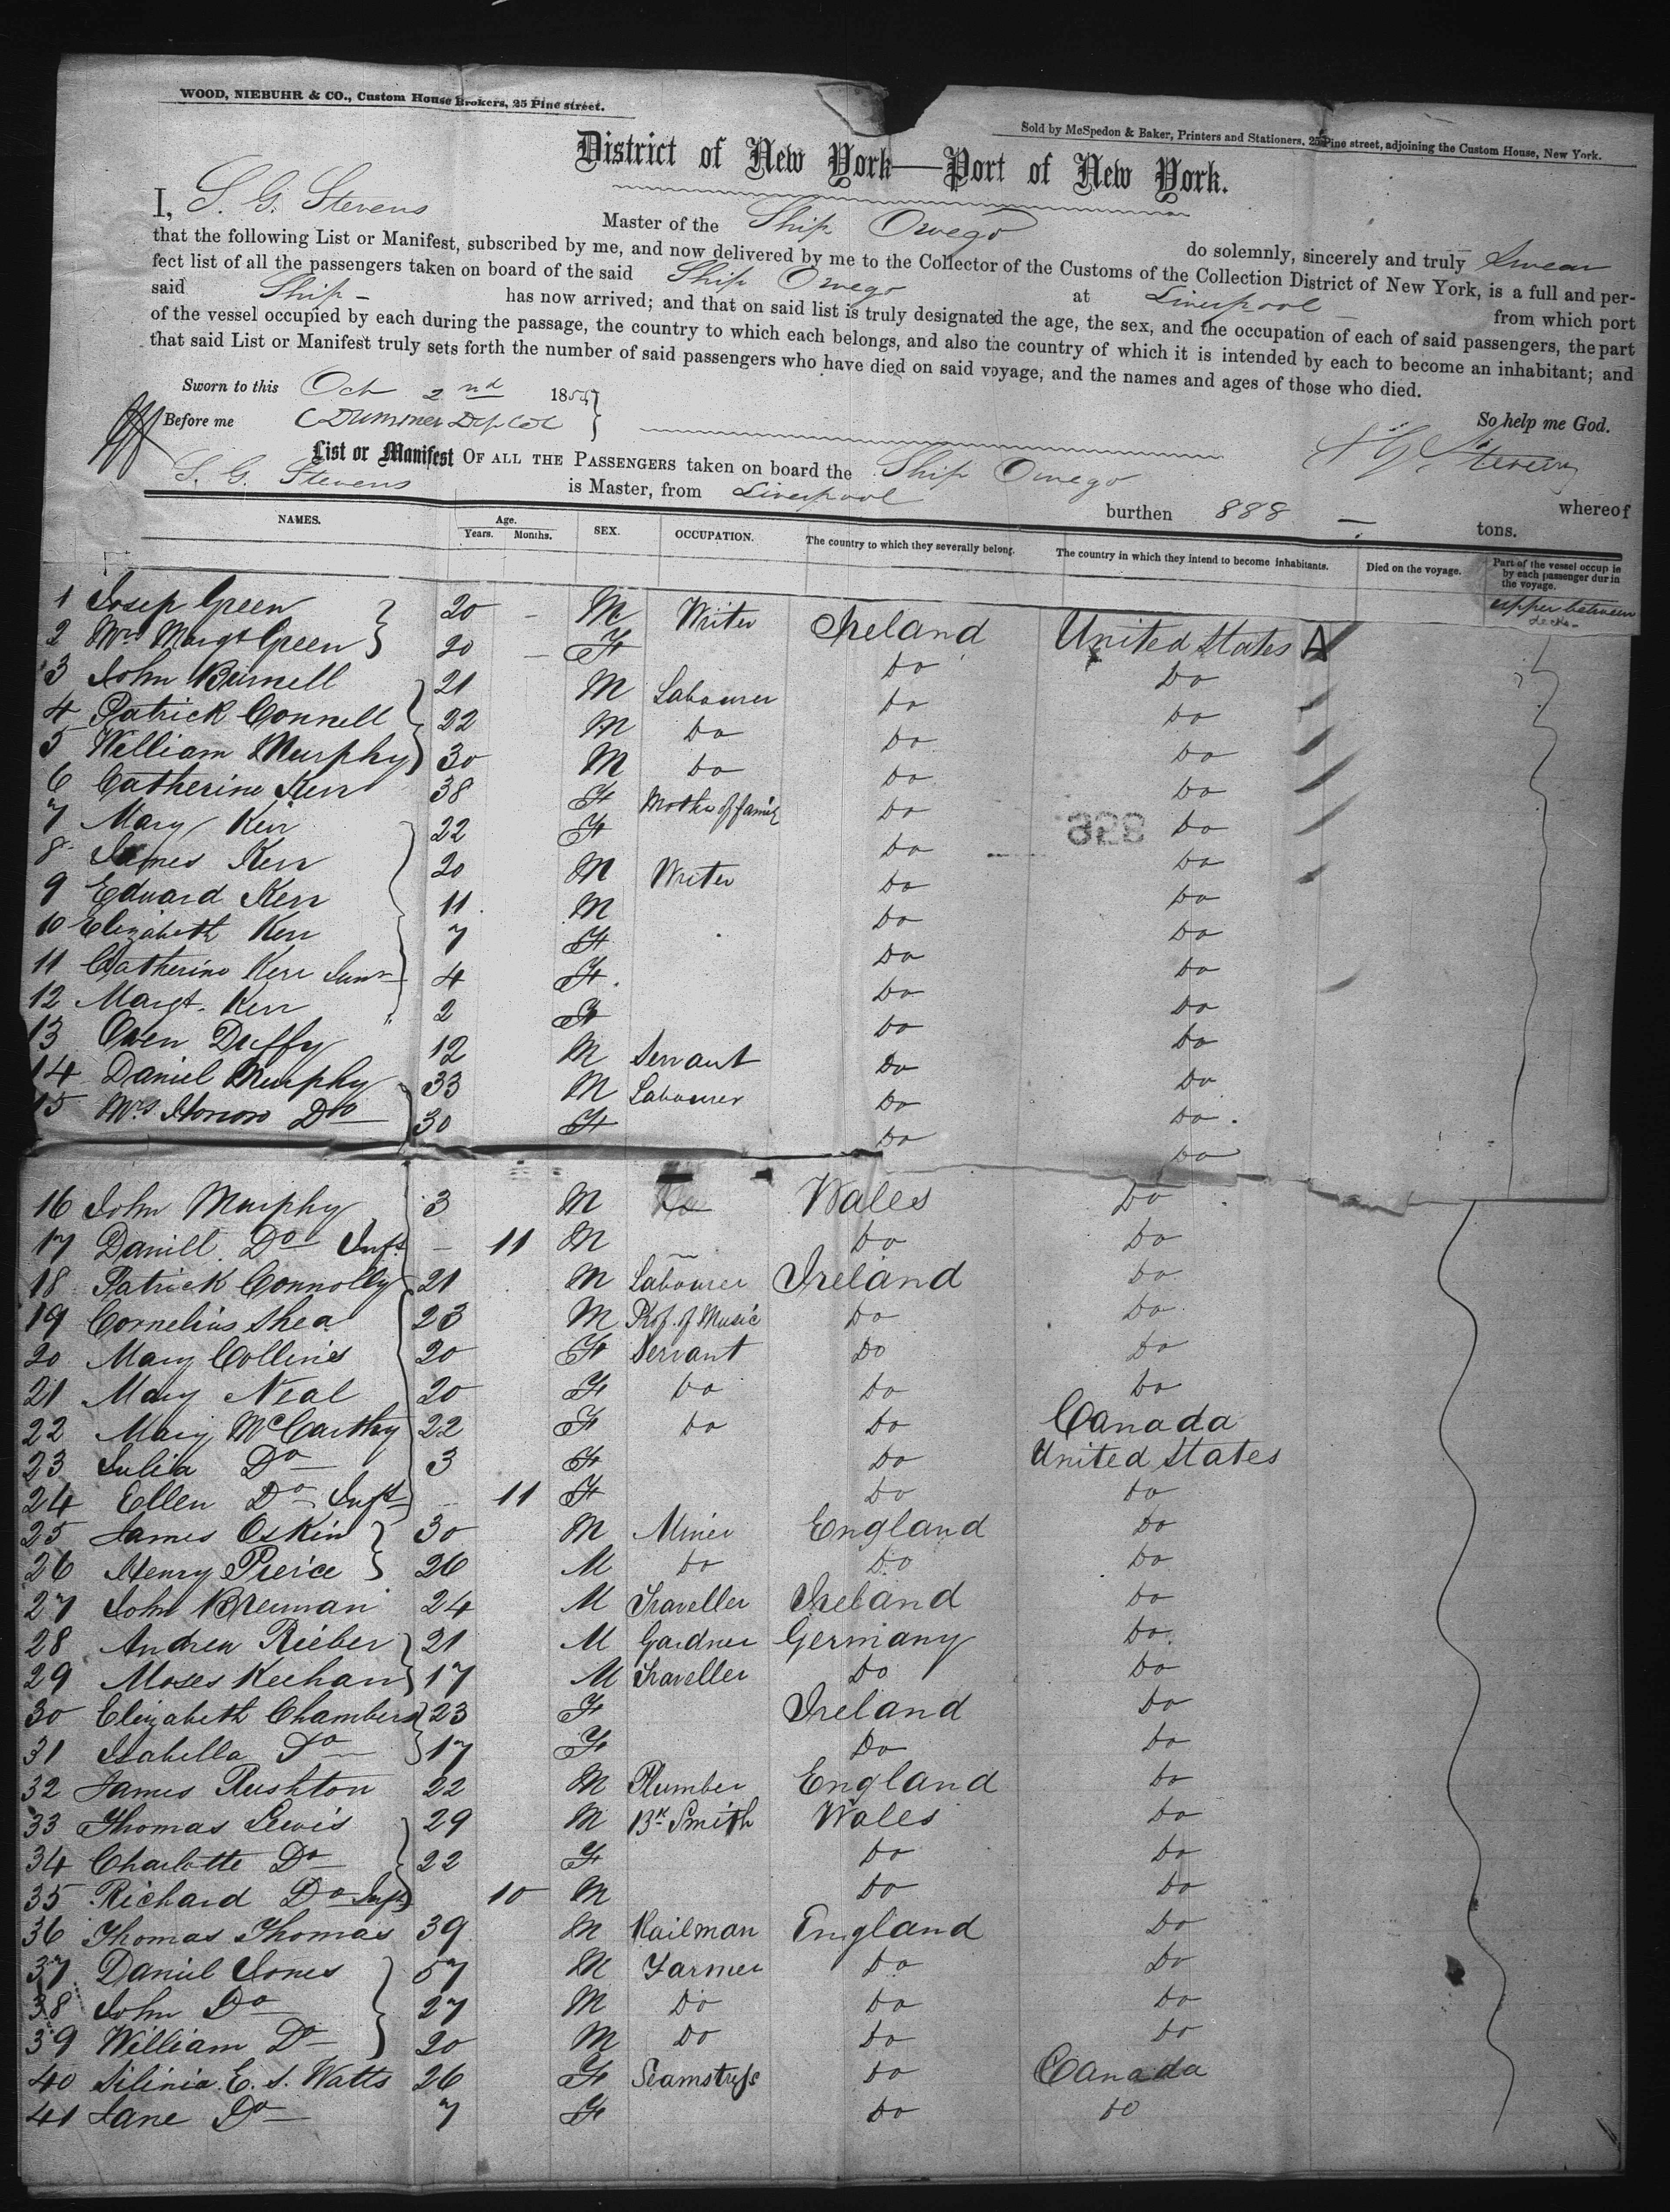 WOOD, NIEBUHR & CO., Custom House Brokers, 25 Pine street.
Sold by McSpedon & Baker, Printers and Stationers, 25 Pine street, adjoining the Custom House, New York.
District of New York—Port of New York.
I, S. G. Stevens Master of the Ship Owego do solemnly, sincerely and truly Swear
that the following List or Manifest, subscribed by me, and now delivered by me to the Collector of the Customs of the Collection District of New York, is a full and per-
fect list of all the passengers taken on board of the said Ship Owego at Liverpool from which port
said Ship has now arrived; and that on said list is truly designated the age, the sex, and the occupation of each of said passengers, the part
of the vessel occupied by each during the passage, the country to which each belongs, and also the country of which it is intended by each to become an inhabitant; and
that said List or Manifest truly sets forth the number of said passengers who have died on said voyage, and the names and ages of those who died.
Sworn to this Oct 2nd 185 So help me God.
Before me S G Stevens
List or Manifest OF ALL THE PASSENGERS taken on board the Ship Owego whereof
S. G. Stevens is Master, from Liverpool burthen 888 tons.
NAMES. Age. Years. Months. SEX. OCCUPATION. The country to which they severally belong. The country in which they intend to become inhabitants. Died on the voyage. Part of the vessel occup ie by each passenger dur in the voyage.
1 Josep Green 20 - M Writer Ireland United States upper between decks
2 Mrs Margt Green 20 - F Do Do
3 John Burnell 21 M Labourer Do Do
4 Patrick Connell 22 M Do Do Do
5 William Murphy 30 M Do Do Do
6 Catherine Kerr 38 F Mother of family Do Do
7 Mary Kerr 22 F Do Do
8 James Kerr 20 M Writer Do Do
9 Edward Kerr 11 M Do Do
10 Elizabeth Kerr 7 F Do Do
11 Catherine Kerr Junr 4 F Do Do
12 Margt. Kerr 2 F Do Do
13 Owen Duffy 12 M Servant Do Do
14 Daniel Murphy 33 M Labourer Do Do
15 Mrs Honoro Do 30 F Do Do
16 John Murphy 3 M Wales Do
17 Daniel Do Inft - 11 M Do Do
18 Patrick Connolly 21 M Labourer Ireland Do
19 Cornelius Shea 23 M Prof. of Music Do Do
20 Mary Collins 20 F Servant Do Do
21 Mary Neal 20 F Do Do Do
22 Mary McCarthy 22 F Do Do Canada
23 Julia Do 3 F Do United States
24 Ellen Do Inft - 11 F Do Do
25 James Oskin 30 M Miner England Do
26 Henry Pierce 26 M Do Do Do
27 John Brennan 24 M Traveller Ireland Do
28 Andrew Rieber 21 M Gardner Germany Do
29 Moses Keehan 17 M Traveller Do Do
30 Elizabeth Chambers 23 F Ireland Do
31 Isabella Do 17 F Do Do
32 James Rushton 22 M Plumber England Do
33 Thomas Lewis 29 M Bk Smith Wales Do
34 Charlotte Do 22 F Do Do
35 Richard Do Inft 10 M Do Do
36 Thomas Thomas 39 M Railman England Do
37 Daniel Jones 57 M Farmer Do Do
38 John Do 27 M Do Do Do
39 William Do 20 M Do Do Do
40 Silinia E. S. Watts 26 F Seamstress Do Canada
41 Jane Do 7 F Do Do